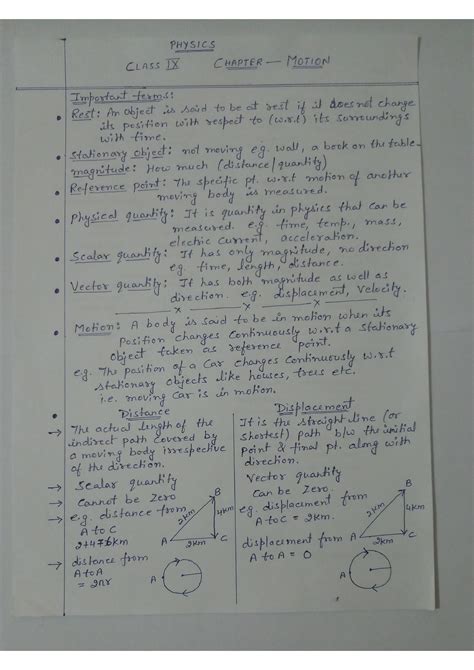 PHYSICS
CLASS IX CHAPTER — MOTION
Important terms:
Rest: An object is said to be at rest if it does not change
its position with respect to (w.r.t) its surroundings
with time.
Stationary object: not moving e.g. wall, a book on the table.
magnitude: How much (distance/quantity)
Reference point: The specific pt. w.r.t motion of another
moving body is measured.
Physical quantity: It is quantity in physics that can be
measured. e.g. time, temp., mass,
electric current, acceleration.
Scalar quantity: It has only magnitude, no direction
e.g. time, length, distance.
Vector quantity: It has both magnitude as well as
direction. e.g. displacement, velocity.
x x x
Motion: A body is said to be in motion when its
Position changes Continuously w.r.t a stationary
Object taken as reference point.
e.g. The position of a Car changes Continuously w.r.t
stationary objects like houses, trees etc.
i.e. moving Car is in motion.
Distance
→ The actual length of the
indirect path covered by
a moving body irrespective
of the direction.
→ Scalar quantity
→ Cannot be Zero
→ e.g. distance from
A to C
2+4=6km
A
B
C
2km
4km
2km
→ distance from
A to A
= 2πr
A
Displacement
It is the straight line (or
shortest) path b/w the initial
point & final pt. along with
direction.
Vector quantity
Can be Zero.
e.g. displacement from
A to C = 2km.
A
B
C
2km
4km
2km
displacement from
A to A = 0
A